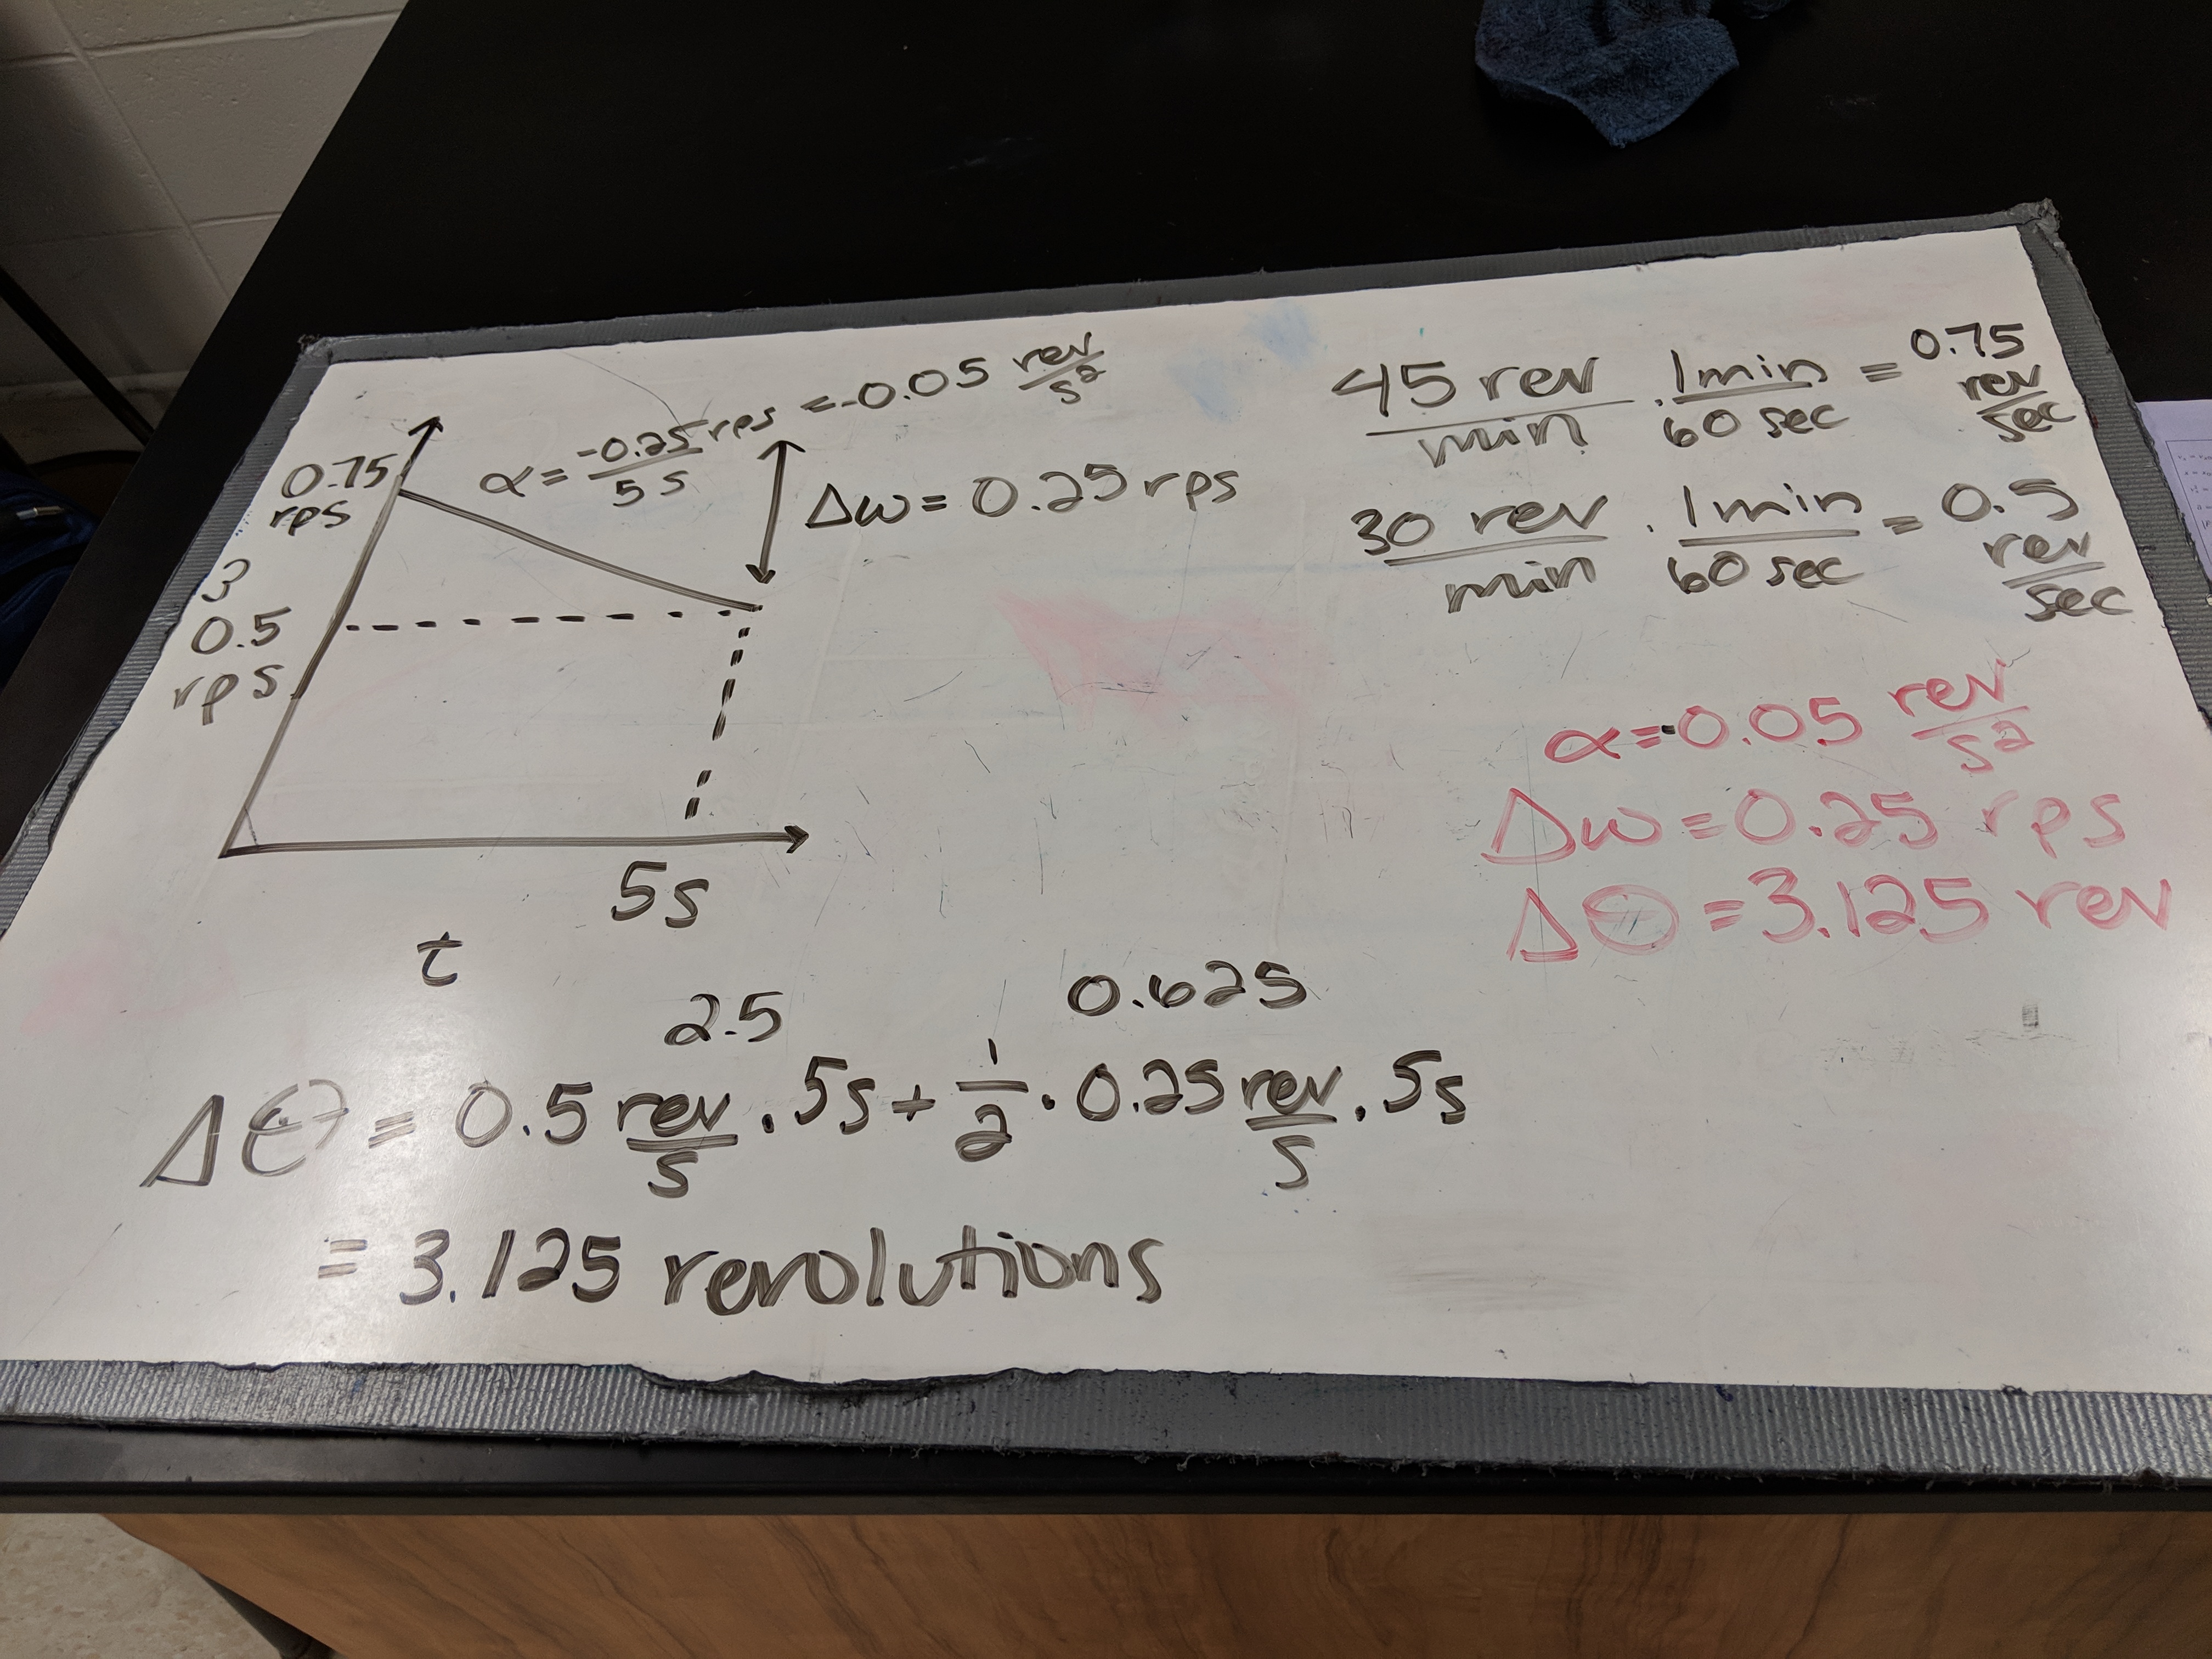 α = -0.25 rps / 5 s = -0.05 rev/s²
0.75
rps
Δω = 0.25 rps
ω
0.5
rps
5s
t
45 rev/min · 1 min/60 sec = 0.75 rev/sec
30 rev/min · 1 min/60 sec = 0.5 rev/sec
α = -0.05 rev/s²
Δω = 0.25 rps
Δθ = 3.125 rev
2.5 0.625
Δθ = 0.5 rev/s · 5s + 1/2 · 0.25 rev/s · 5s
= 3.125 revolutions